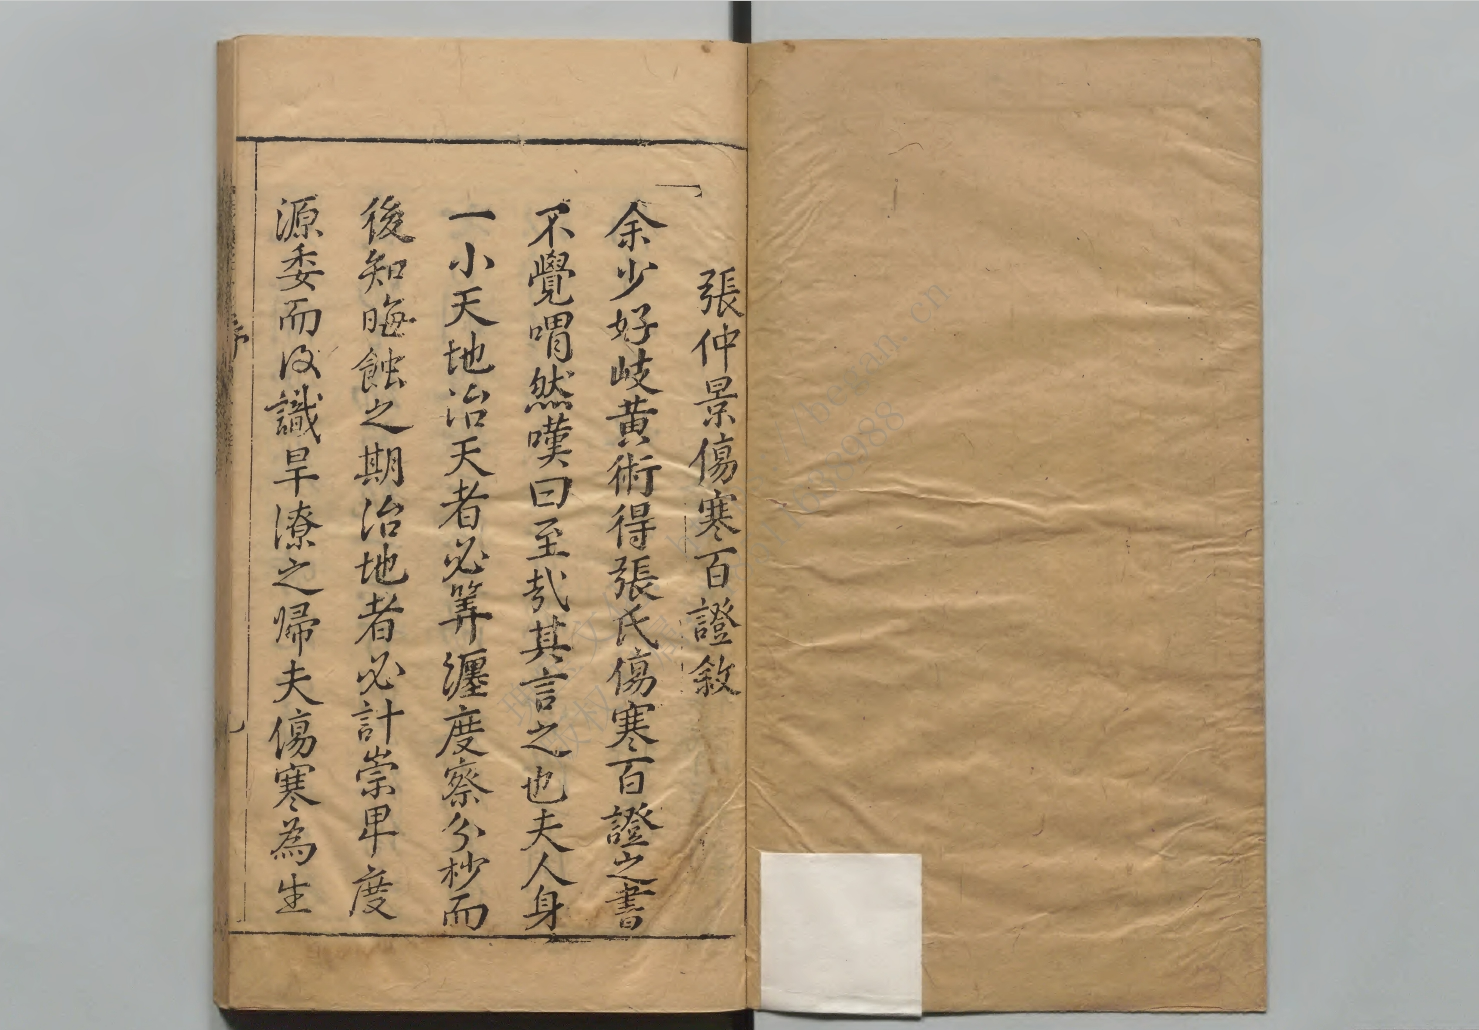 張仲景傷寒百證敘
余少好岐黄術得張氏傷寒百證之書
不覺喟然嘆曰至哉其言之也夫人身
一小天地治天者必筭躔度察分杪而
後知晦蝕之期治地者必計崇卑度
源委而後識旱潦之歸夫傷寒為生
序